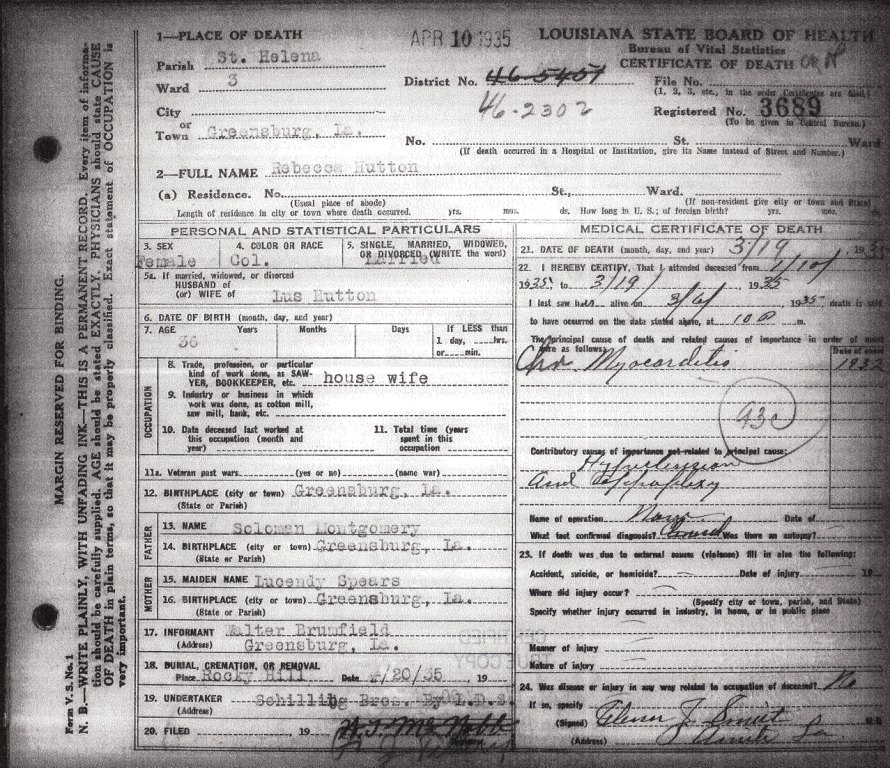 MARGIN RESERVED FOR BINDING.
N. B.—WRITE PLAINLY, WITH UNFADING INK—THIS IS A PERMANENT RECORD. Every item of information should be carefully supplied. AGE should be stated EXACTLY. PHYSICIANS should state CAUSE OF DEATH in plain terms, so that it may be properly classified. Exact statement of OCCUPATION is very important.
Form V. S. No. 1
APR 10 1935
LOUISIANA STATE BOARD OF HEALTH
Bureau of Vital Statistics
CERTIFICATE OF DEATH
1—PLACE OF DEATH
Parish St. Helena
Ward 3
City
or
Town Greensburg, La.
District No. 46-5451
46-2302
File No.
(1, 2, 3, etc., in the order Certificates are filed.)
Registered No. 3689
(To be given in Central Bureau.)
No. St. Ward
(If death occurred in a Hospital or Institution, give its Name instead of Street and Number.)
2—FULL NAME Rebecca Hutton
(a) Residence. No. St., Ward.
(Usual place of abode) (If non-resident give city or town and State)
Length of residence in city or town where death occurred. yrs. mos. ds. How long in U. S.; of foreign birth? yrs. mos. ds.
PERSONAL AND STATISTICAL PARTICULARS
3. SEX
Female
4. COLOR OR RACE
Col.
5. SINGLE, MARRIED, WIDOWED,
OR DIVORCED (WRITE the word)
Married
5a. If married, widowed, or divorced
HUSBAND of
(or) WIFE of Lus Hutton
6. DATE OF BIRTH (month, day, and year)
7. AGE Years Months Days
36
If LESS than
1 day, hrs.
or min.
OCCUPATION
8. Trade, profession, or particular
kind of work done, as SAW-
YER, BOOKKEEPER, etc. house wife
9. Industry or business in which
work was done, as cotton mill,
saw mill, bank, etc.
10. Date deceased last worked at
this occupation (month and
year)
11. Total time (years
spent in this
occupation
11a. Veteran past wars (yes or no) (name war)
12. BIRTHPLACE (city or town) Greensburg, La.
(State or Parish)
FATHER
13. NAME Soloman Montgomery
14. BIRTHPLACE (city or town) Greensburg, La.
(State or Parish)
MOTHER
15. MAIDEN NAME Lucendy Spears
16. BIRTHPLACE (city or town) Greensburg, La.
(State or Parish)
17. INFORMANT Walter Brumfield
(Address) Greensburg, La.
18. BURIAL, CREMATION, OR REMOVAL
Place Rocky Hill Date /20/35, 19
19. UNDERTAKER Schilling Bros. By
(Address)
20. FILED 19
MEDICAL CERTIFICATE OF DEATH
21. DATE OF DEATH (month, day, and year) 3/19 193
22. I HEREBY CERTIFY, That I attended deceased from 1/10/
1935 to 3/19/, 1935
I last saw her alive on 3/6/, 1935 death is said
to have occurred on the date stated above, at 10 P m.
The principal cause of death and related causes of importance in order of onset
were as follows:
Date of onset
Chr. Myocarditis 1932
93c
Contributory causes of importance not related to principal cause:
Hypertension
and Apoplexy
Name of operation None Date of
What test confirmed diagnosis? Clinical Was there an autopsy?
23. If death was due to external causes (violence) fill in also the following:
Accident, suicide, or homicide? Date of injury 19
Where did injury occur?
(Specify city or town, parish, and State)
Specify whether injury occurred in industry, in home, or in public place
Manner of injury
Nature of injury
24. Was disease or injury in any way related to occupation of deceased? No
If so, specify
(Signed) M.D.
(Address) Amite La